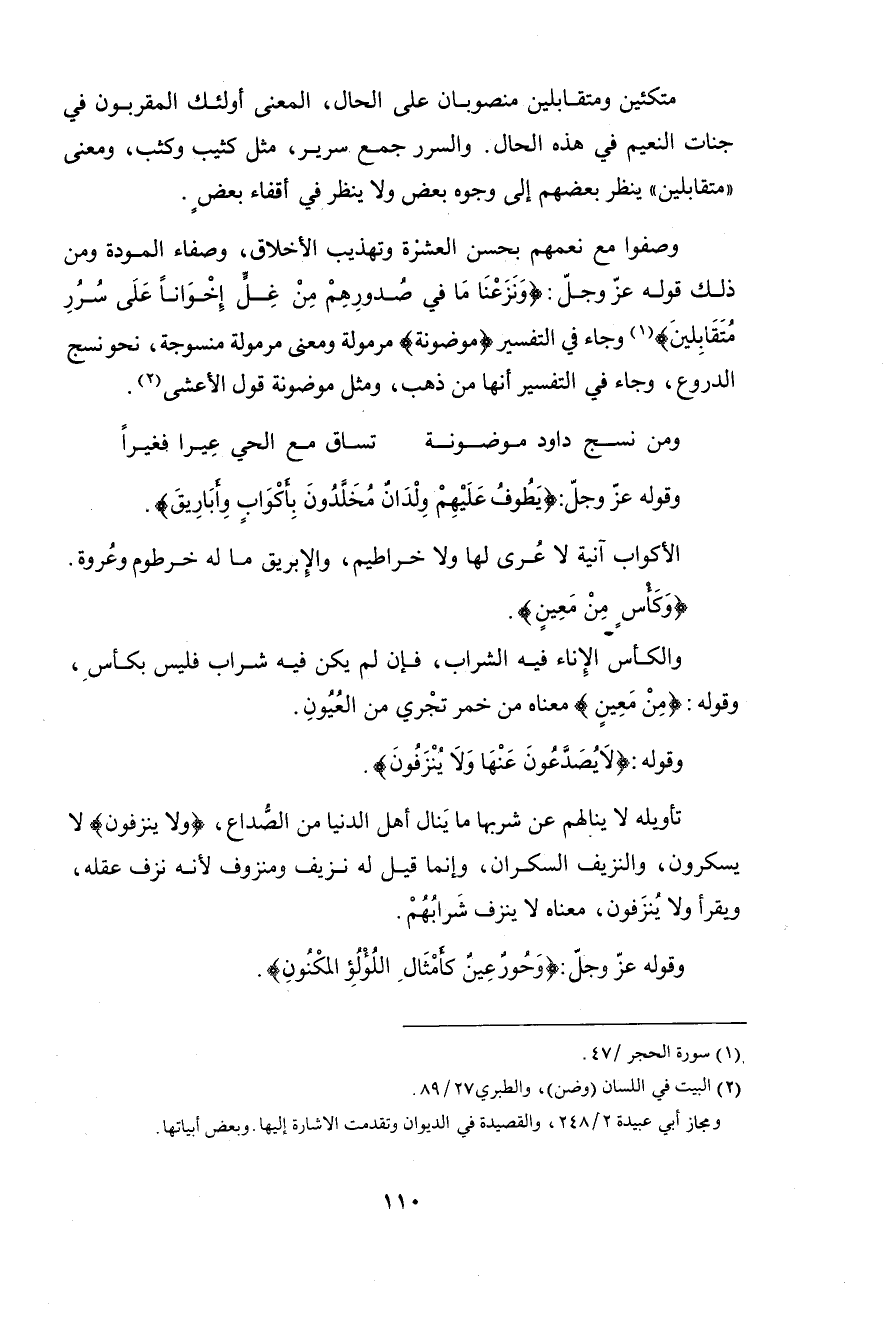 متكئين ومتقابلين منصوبان على الحال، المعنى أولئك المقربون في
جنات النعيم في هذه الحال. والسرر جمع سرير، مثل كثيب وكثب، ومعنى
«متقابلين» ينظر بعضهم إلى وجوه بعض ولا ينظر في أقفاء بعضٍ.
وصفوا مع نعمهم بحسن العشْرة وتهذيب الأخلاق، وصفاء المودة ومن
ذلك قوله عزّ وجلّ: ﴿وَنَزَعْنَا مَا في صُدورِهِمْ مِنْ غِلٍّ إِخْوَاناً عَلَى سُرُرٍ
مُتَقَابِلينَ﴾(١) وجاء في التفسير ﴿موضونة﴾ مرمولة ومعنى مرمولة منسوجة، نحو نسج
الدروع، وجاء في التفسير أنها من ذهب، ومثل موضونة قول الأعشى(٢).
ومن نسج داود موضونة تساق مع الحي عِيرا فغيراً
وقوله عزّ وجلّ: ﴿يَطُوفُ عَلَيْهِمْ وِلْدَانٌ مُخَلَّدُونَ بِأَكْوَابٍ وأَبَارِيقَ﴾.
الأكواب آنية لا عُرى لها ولا خراطيم، والإبريق ما له خرطوم وعُروة.
﴿وَكَأْسٍ مِنْ مَعِينٍ﴾.
والكأس الإناء فيه الشراب، فإن لم يكن فيه شراب فليس بكأسِ،
وقوله: ﴿مِنْ مَعِينٍ﴾ معناه من خمر تجْري من العُيُونِ.
وقوله: ﴿لَايُصَدَّعُونَ عَنْهَا وَلَا يُنْزَفُونَ﴾.
تأويله لا ينالهم عن شربها ما يَنال أهل الدنيا من الصُّداع، ﴿ولا ينزفون﴾ لا
يسكرون، والنزيف السكران، وإنما قيل له نزيف ومنزوف لأنه نزف عقله،
ويقرأ ولا يُنزَفون، معناه لا ينزف شَرابُهُمْ.
وقوله عزّ وجلّ: ﴿وَحُورٌ عِينٌ كَأَمْثَالِ اللُؤْلُؤِ المَكْنُونِ﴾.
(١) سورة الحجر /٤٧.
(٢) البيت في اللسان (وضن)، والطبري٢٧/ ٨٩.
ومجاز أبي عبيدة ٢/ ٢٤٨، والقصيدة في الديوان وتقدمت الاشارة إليها. وبعض أبياتها.
١١٠